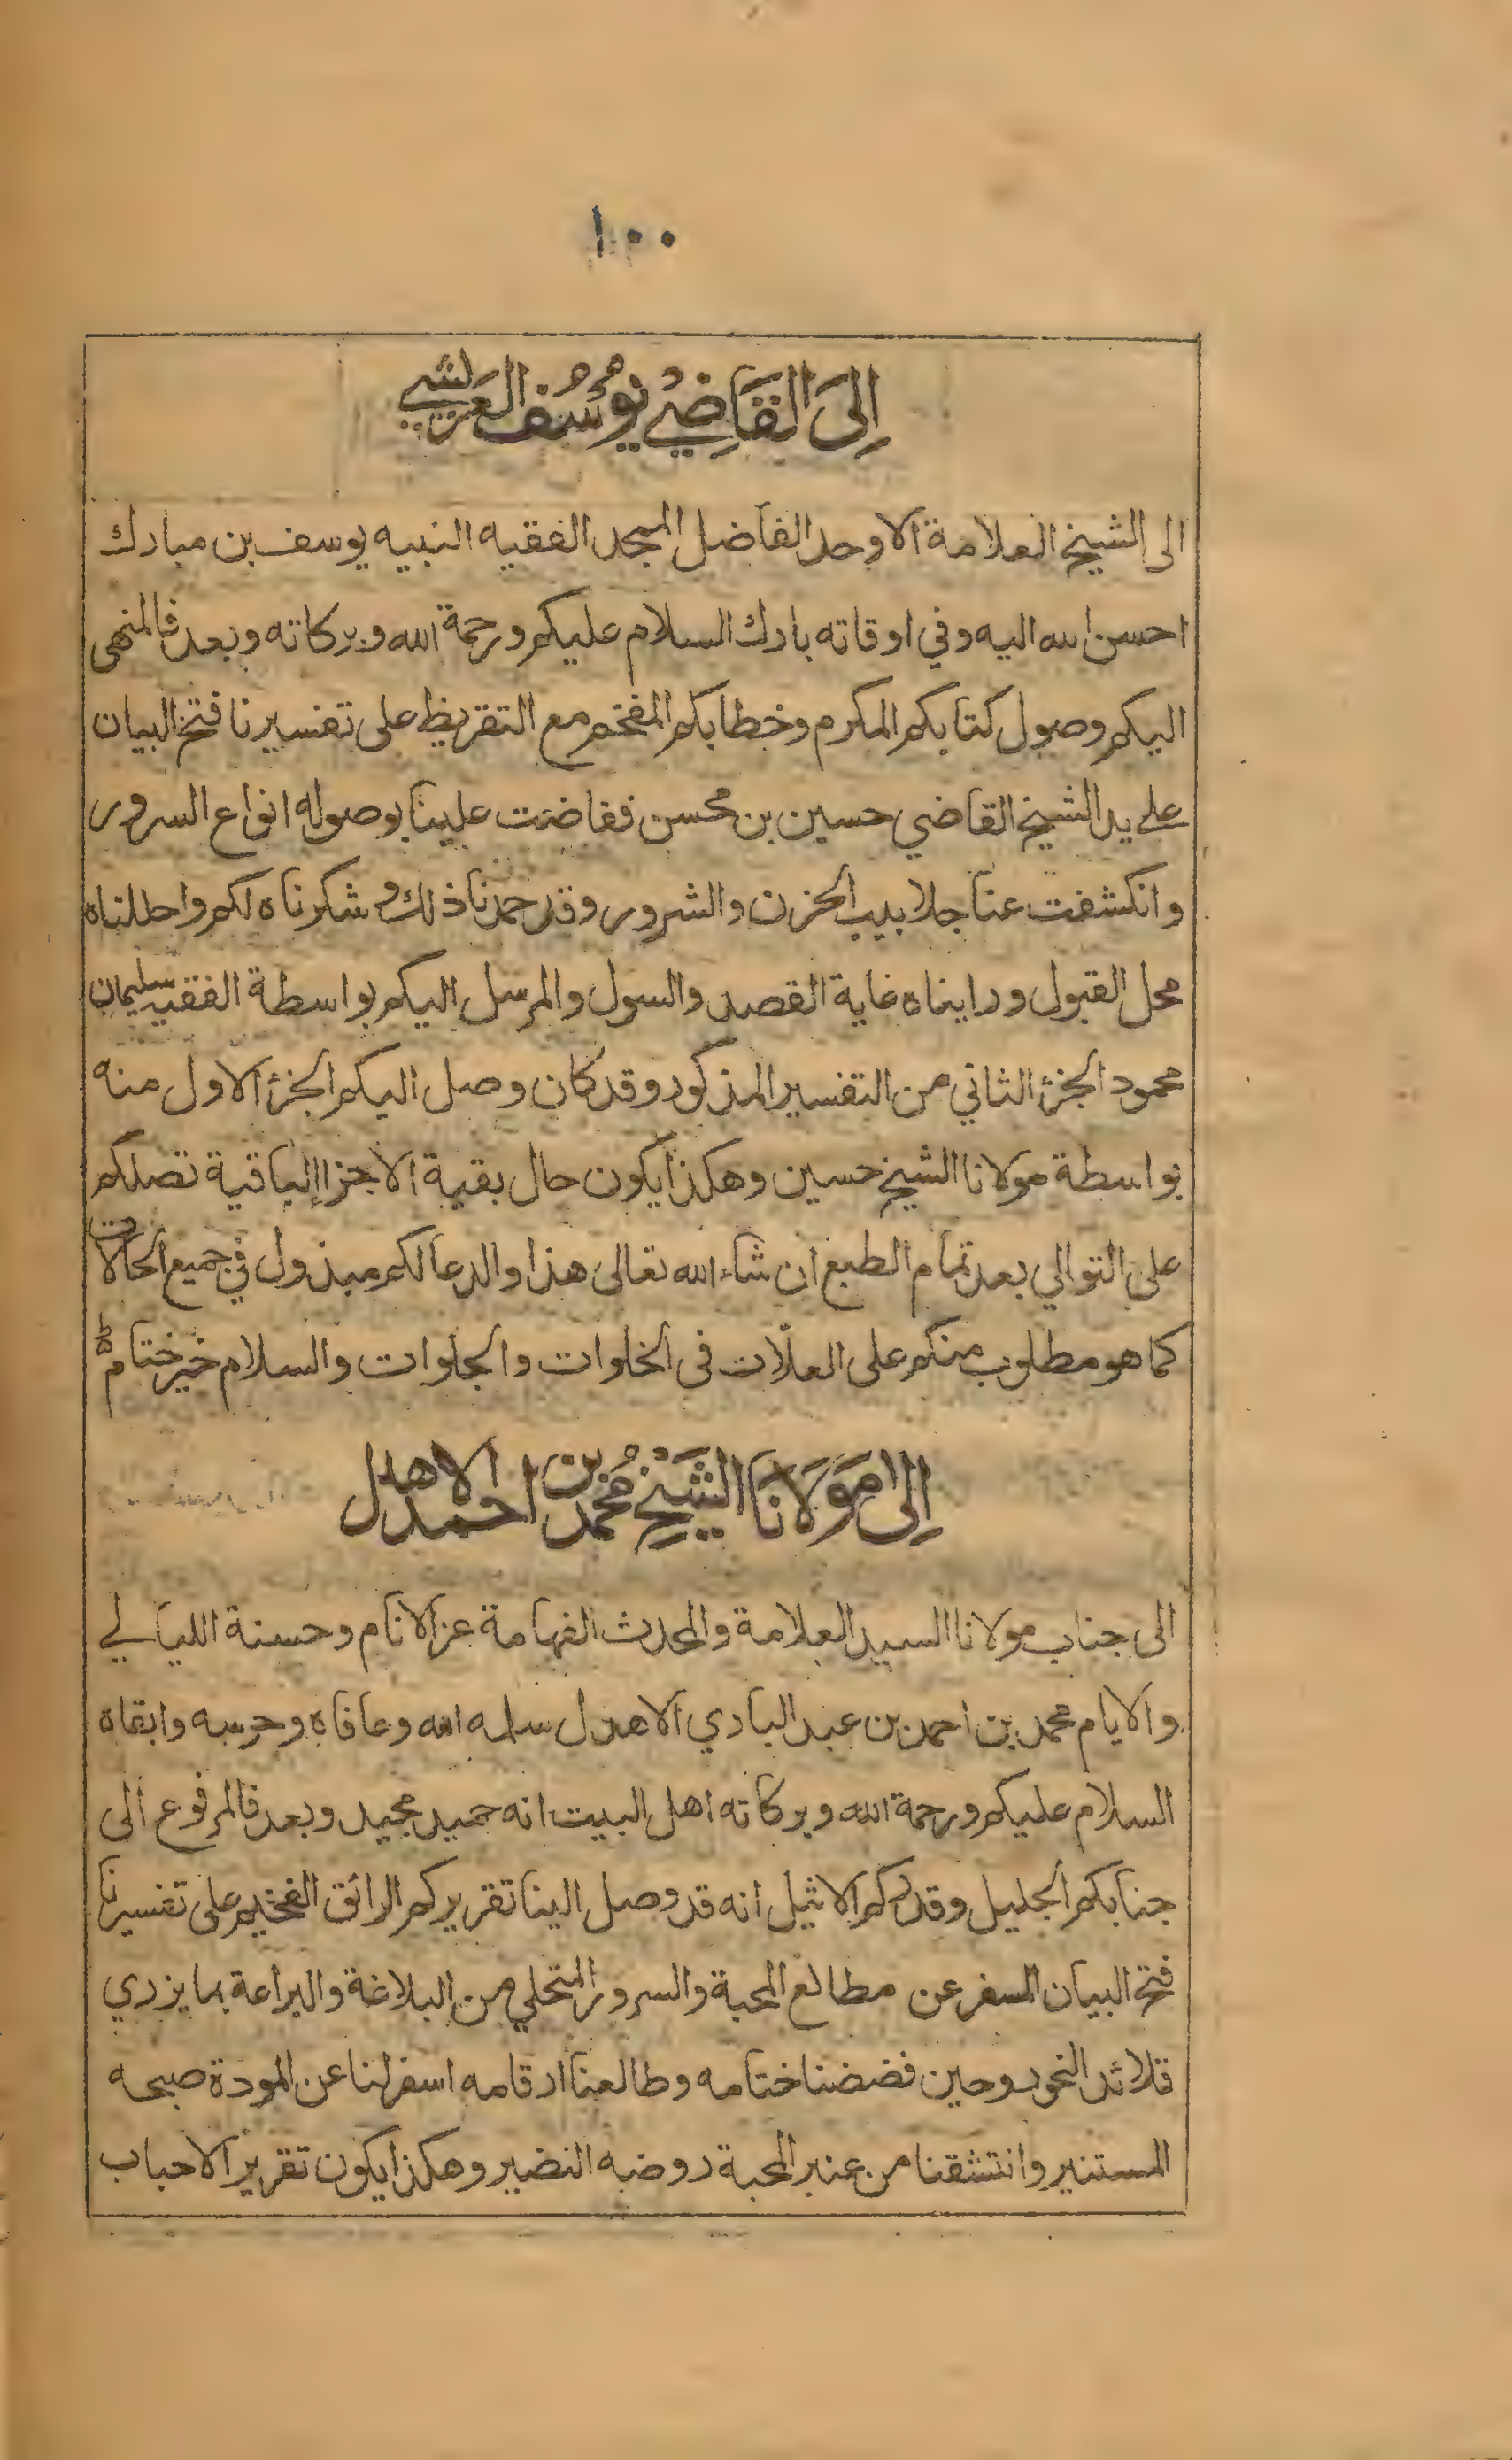 ١٠٠
اِلىَ القَاضِي يُوسُف العَريشي
الى الشيخ العلامة الاوحد الفاضل المجد الفقيه النبيه يوسف بن مبارك
احسن الله اليه وفي اوقاته بارك السلام عليكم ورحمة الله وبركاته وبعد فالمنهى
اليكم وصول كتابكم المكرم وخطابكم المفخم مع التقريظ على تفسيرنا فتح البيان
على يد الشيخ القاضي حسين بن محسن ففاضت علينا بوصوله انواع السرور
وانكشفت عنا جلابيب الحزن والشرور وقد حمدنا ذلك وشكرناه لكم واحللناه
محل القبول ورايناه غاية القصد والسول والمرسل اليكم بواسطة الفقيه سليمان
محمود الجزؤ الثاني من التفسير المذكور وقد كان وصل اليكم الجزؤ الاول منه
بواسطة مولانا الشيخ حسين وهكذا يكون حال بقية الاجزاء الباقية تصلكم
على التوالي بعد تمام الطبع ان شاء الله تعالى هذا والدعا لكم مبذول في جميع الحالات
كما هو مطلوب منكم على العلات فى الخلوات والجلوات والسلام خير ختام
اِلىٰ مَوَلَانَا الشَيْخ مُحَمد بن احمد الاهدل
الى جناب مولانا السيد العلامة والمحدث الفهامة عز الانام وحسنة الليالي
والايام محمد بن احمد بن عبد الباري الاهدل سلمه الله وعافاه وحرسه وابقاه
السلام عليكم ورحمة الله وبركاته اهل البيت انه حميد مجيد وبعد فالمرفوع الى
جنابكم الجليل وقدركم الاثيل انه قد وصل الينا تقريركم الرائق الفخيم على تفسيرنا
فتح البيان المسفر عن مطالع المحبة والسرور المتحلي من البلاغة والبراعة بما يزدي
قلائد النحور وحين فضضنا ختامه وطالعنا ارقامه اسفر لنا عن المودة صبحه
المستنير وانتشقنا من عنبر المحبة روضه النضير وهكذا يكون تقرير الاحباب